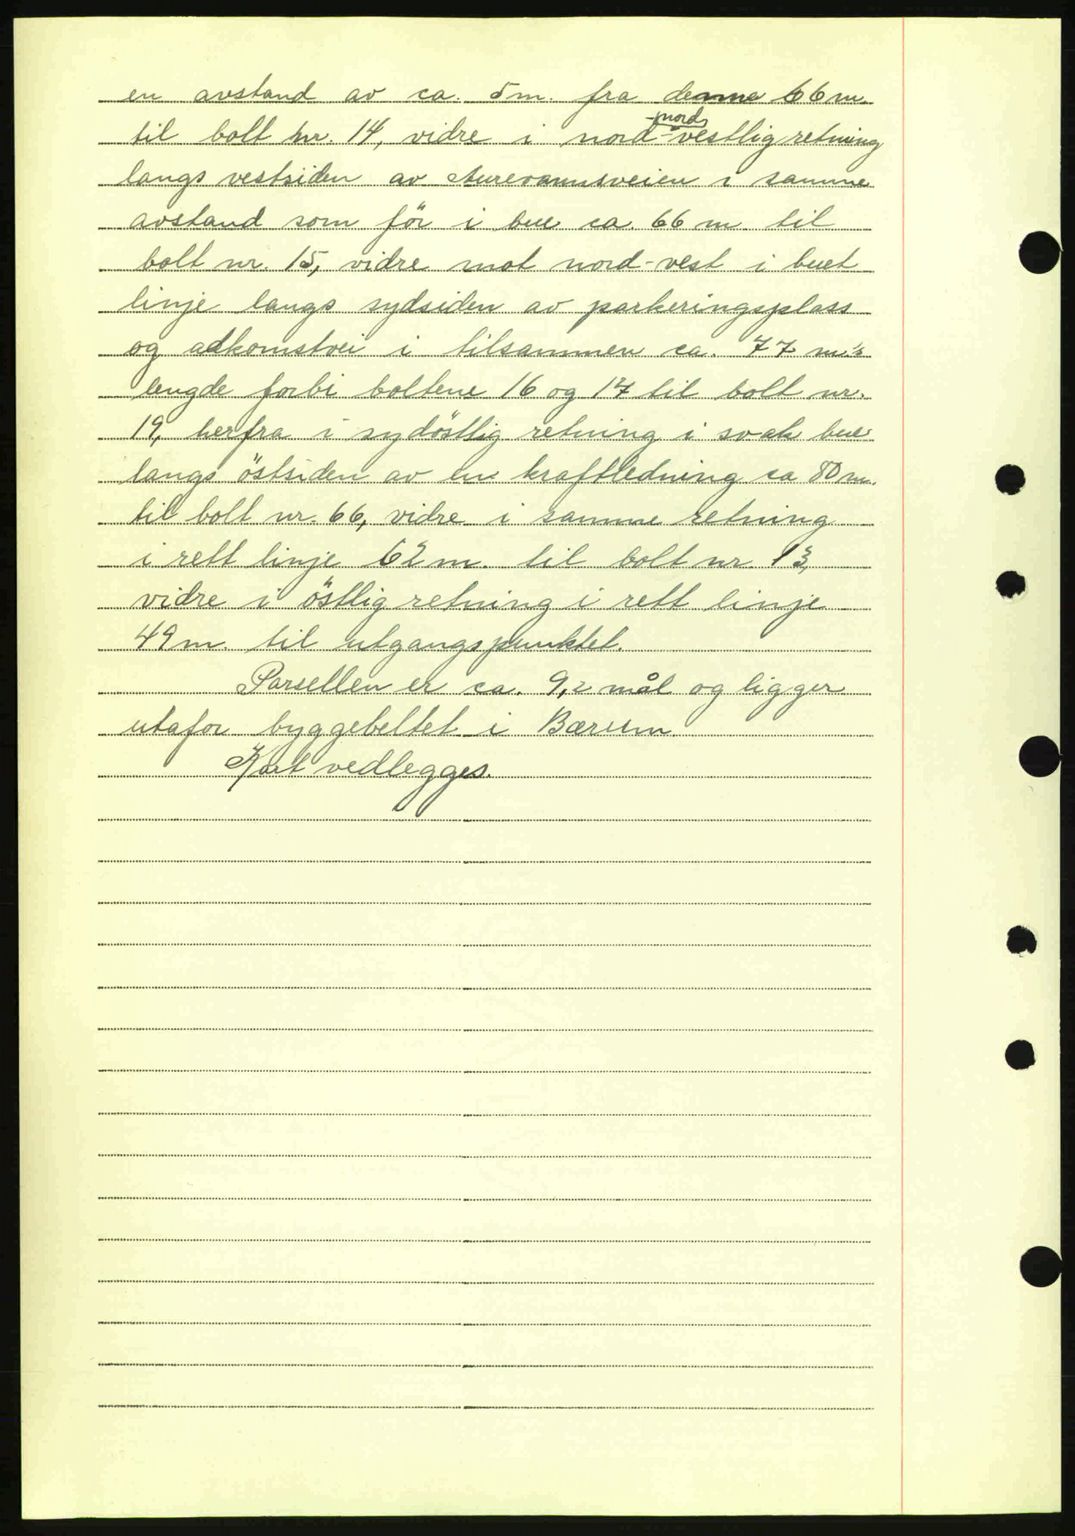 en avstand av ca. 5 m. fra denne 66 m.
til bolt nr. 14, vidre i nord-nordvestlig retning
langs vestsiden av Aurevannsveien i samme
avstand som för i bue ca. 66 m. til
bolt nr. 15, vidre mot nord-vest i buet
linje langs sydsiden av parkeringsplass
og adkomstvei i tilsammen ca. 77 m's
lengde forbi boltene 16 og 17 til bolt nr.
19, herfra i sydöstlig retning i svak bue
langs östsiden av en kraftledning ca 80 m.
til bolt nr. 66, vidre i samme retning
i rett linje 62 m. til bolt nr. 13,
vidre i östlig retning i rett linje
49 m. til utgangspunktet.
Parsellen er ca. 9,2 mål og ligger
utafor byggebeltet i Bærum.
Kart vedlegges.